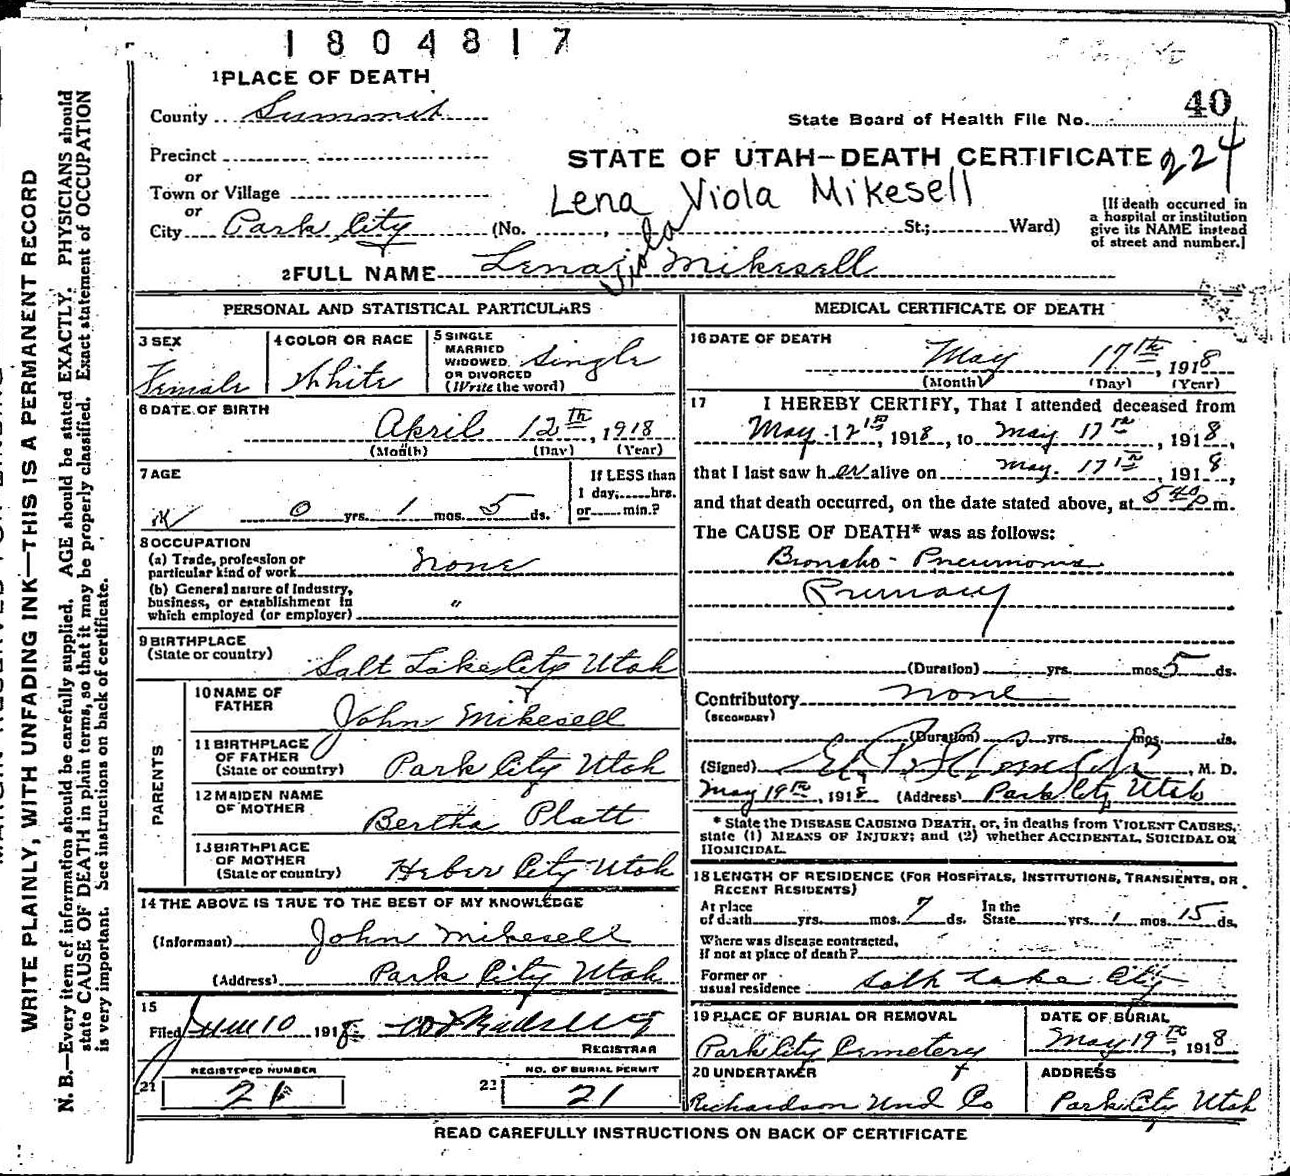 1804817
1 PLACE OF DEATH
County Summit
40
State Board of Health File No.
224
Precinct
or
Town or Village
or
City Park City
STATE OF UTAH—DEATH CERTIFICATE
Lena Viola Mikesell
(No. , St.; Ward)
[If death occurred in
a hospital or institution
give its NAME instead
of street and number.]
2 FULL NAME Lena Viola Mikesell
WRITE PLAINLY, WITH UNFADING INK—THIS IS A PERMANENT RECORD
N. B.—Every item of information should be carefully supplied. AGE should be stated EXACTLY. PHYSICIANS should
state CAUSE OF DEATH in plain terms, so that it may be properly classified. Exact statement of OCCUPATION
is very important. See instructions on back of certificate.
PERSONAL AND STATISTICAL PARTICULARS
3 SEX
Female
4 COLOR OR RACE
White
5 SINGLE
MARRIED
WIDOWED
OR DIVORCED
(Write the word)
Single
6 DATE OF BIRTH
April 12th, 1918
(Month) (Day) (Year)
7 AGE
0 yrs. 1 mos. 5 ds.
If LESS than
1 day, hrs.
or min.?
8 OCCUPATION
(a) Trade, profession or
particular kind of work None
(b) General nature of Industry,
business, or establishment in
which employed (or employer) "
9 BIRTHPLACE
(State or country)
Salt Lake City Utah
PARENTS
10 NAME OF
FATHER
John Mikesell
11 BIRTHPLACE
OF FATHER
(State or country)
Park City Utah
12 MAIDEN NAME
OF MOTHER
Bertha Platt
13 BIRTHPLACE
OF MOTHER
(State or country)
Heber City Utah
14 THE ABOVE IS TRUE TO THE BEST OF MY KNOWLEDGE
(Informant) John Mikesell
(Address) Park City Utah
15
Filed June 10 1918
REGISTRAR
REGISTERED NUMBER
21
21
NO. OF BURIAL PERMIT
22
21
MEDICAL CERTIFICATE OF DEATH
16 DATE OF DEATH
May 17th, 1918
(Month) (Day) (Year)
17 I HEREBY CERTIFY, That I attended deceased from
May 12th, 1918, to May 17th, 1918,
that I last saw her alive on May 17th, 1918,
and that death occurred, on the date stated above, at 5 40 p m.
The CAUSE OF DEATH* was as follows:
Broncho-Pneumonia
Primary
(Duration) yrs. mos. 5 ds.
Contributory none
(SECONDARY)
(Duration) yrs. mos. ds.
(Signed) , M. D.
May 19th, 1918 (Address) Park City Utah
* State the DISEASE CAUSING DEATH, or, in deaths from VIOLENT CAUSES,
state (1) MEANS OF INJURY; and (2) whether ACCIDENTAL, SUICIDAL OR
HOMICIDAL.
18 LENGTH OF RESIDENCE (FOR HOSPITALS, INSTITUTIONS, TRANSIENTS, OR
RECENT RESIDENTS)
At place
of death yrs. mos. 7 ds.
In the
State yrs. 1 mos. 15 ds.
Where was disease contracted,
If not at place of death?
Former or
usual residence Salt Lake City
19 PLACE OF BURIAL OR REMOVAL
Park City Cemetery
DATE OF BURIAL
May 19th, 1918
20 UNDERTAKER
Richardson Und Co
ADDRESS
Park City Utah
READ CAREFULLY INSTRUCTIONS ON BACK OF CERTIFICATE